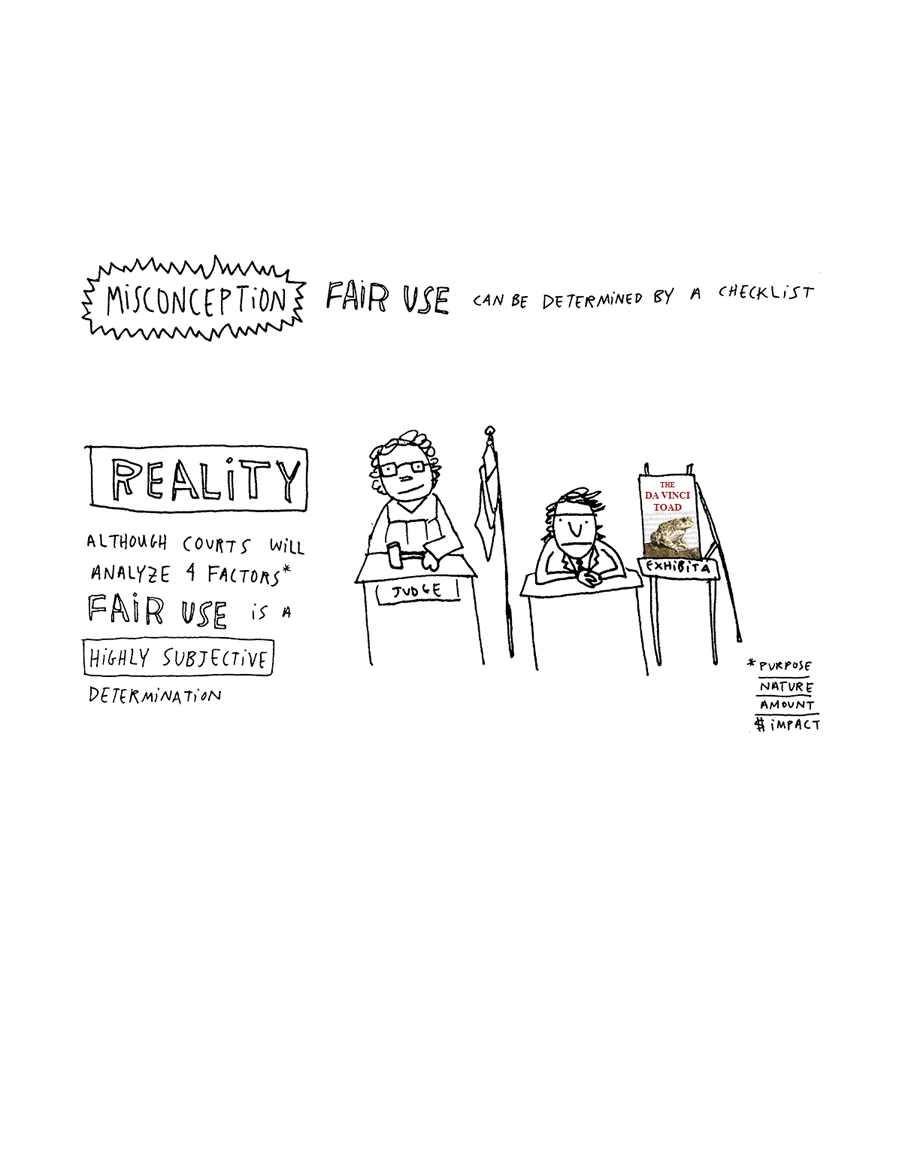 MISCONCEPTION FAIR USE CAN BE DETERMINED BY A CHECKLIST
REALITY
ALTHOUGH COURTS WILL
ANALYZE 4 FACTORS*
FAIR USE IS A
HIGHLY SUBJECTIVE
DETERMINATION
JUDGE
THE
DA VINCI
TOAD
EXHIBIT A
*PURPOSE
NATURE
AMOUNT
$ IMPACT